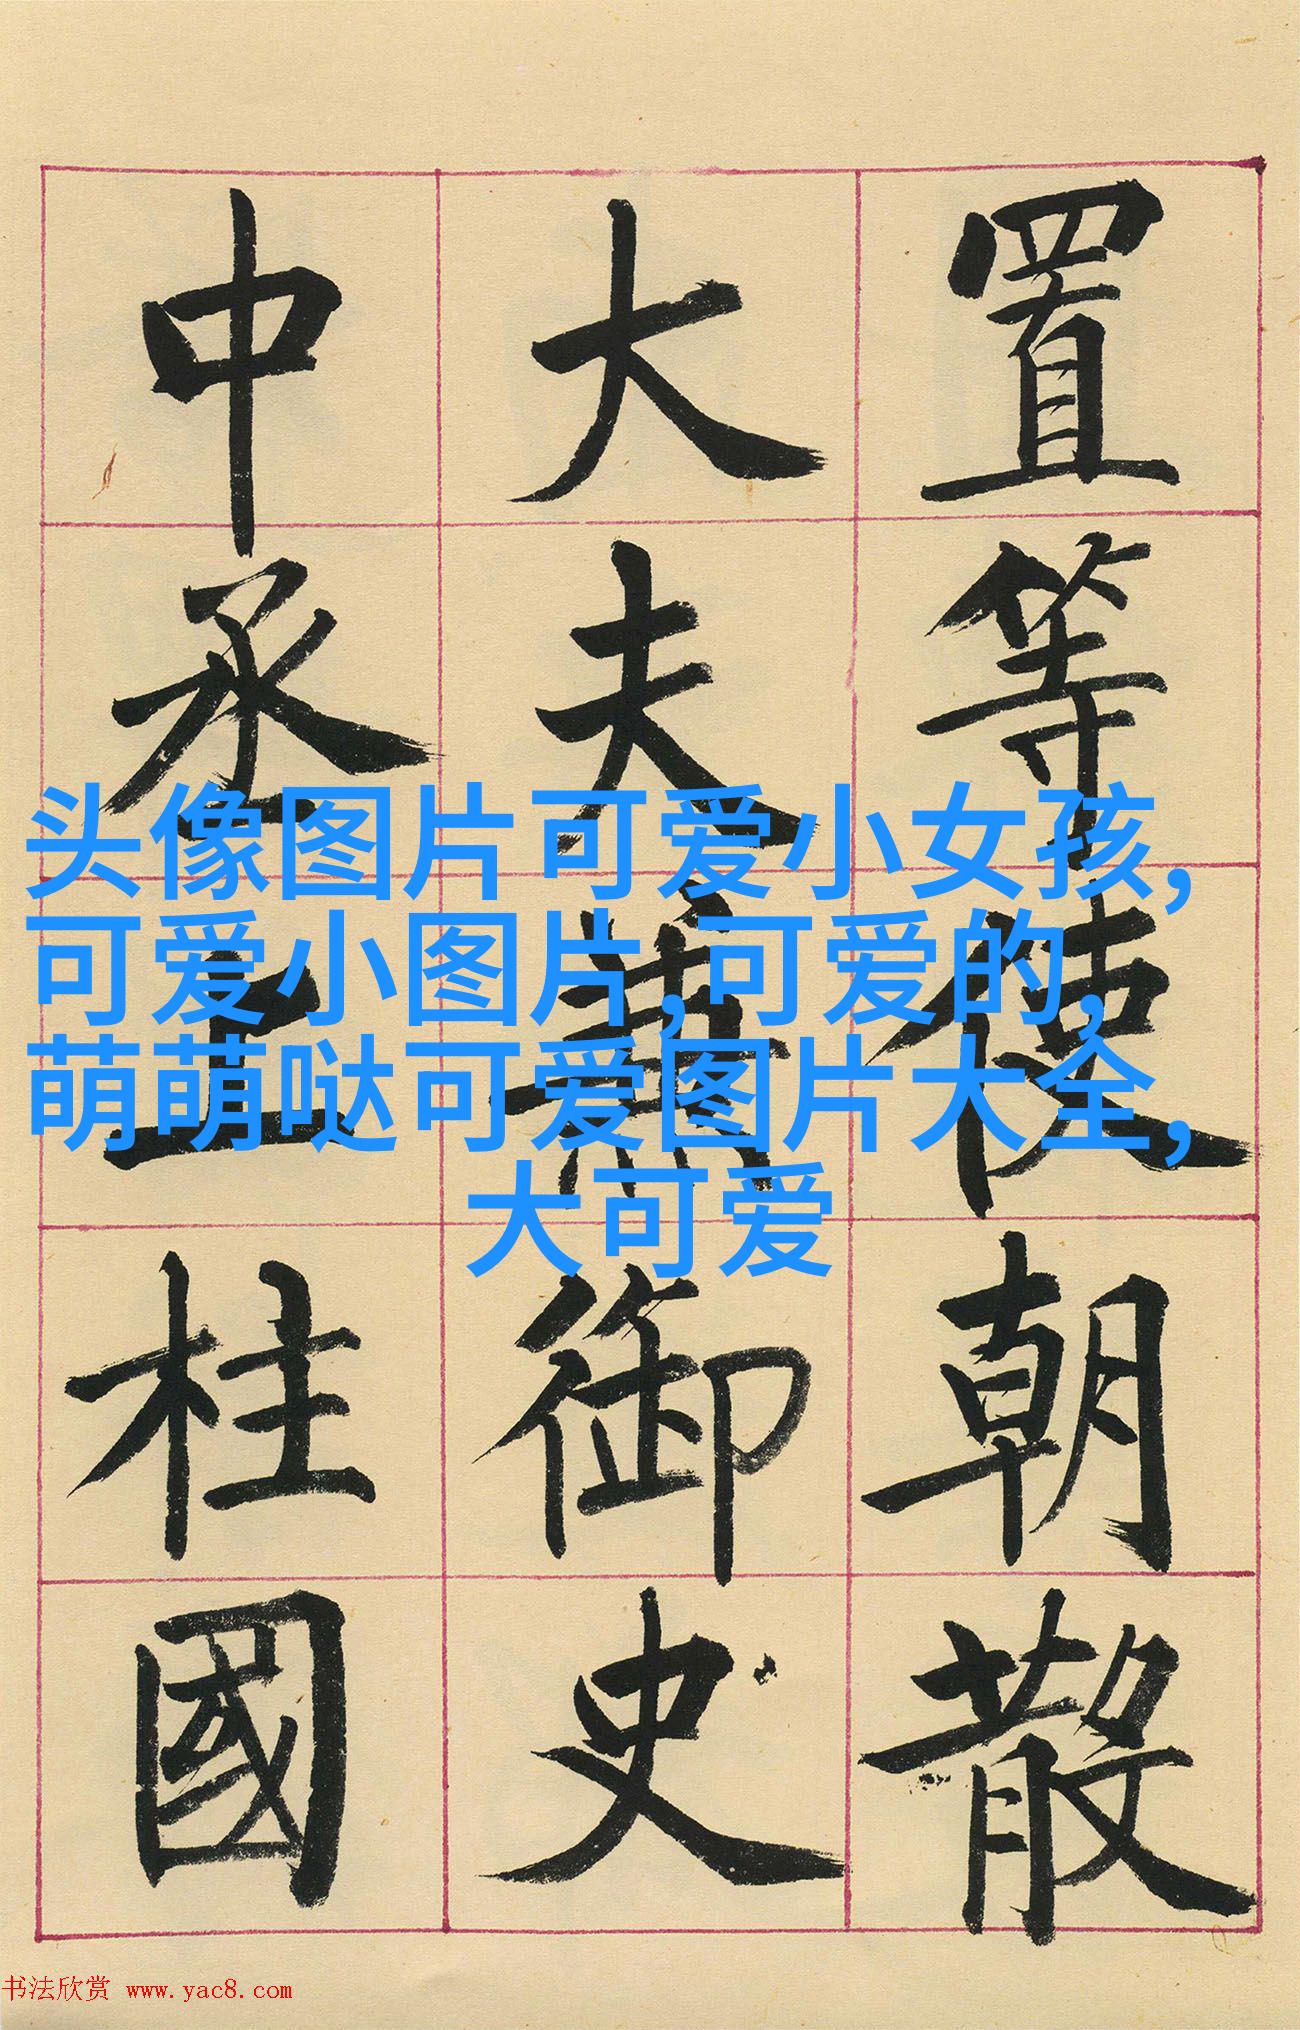 置等使朝散
大夫兼御史
中丞上柱國
头像图片可爱小女孩,
可爱小图片,可爱的,
萌萌哒可爱图片大全,
大可爱
书法欣赏 www.yac8.com